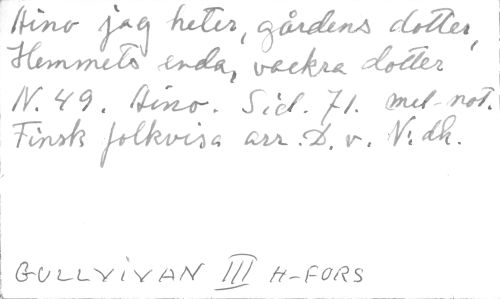 Aino jag heter, gårdens dotter,
Hemmets enda, vackra dotter
N. 49. Aino. Sid. 71. mel-not.
Finsk folkvisa arr. D. v. N:dk.
GULLVIVAN III H-FORS